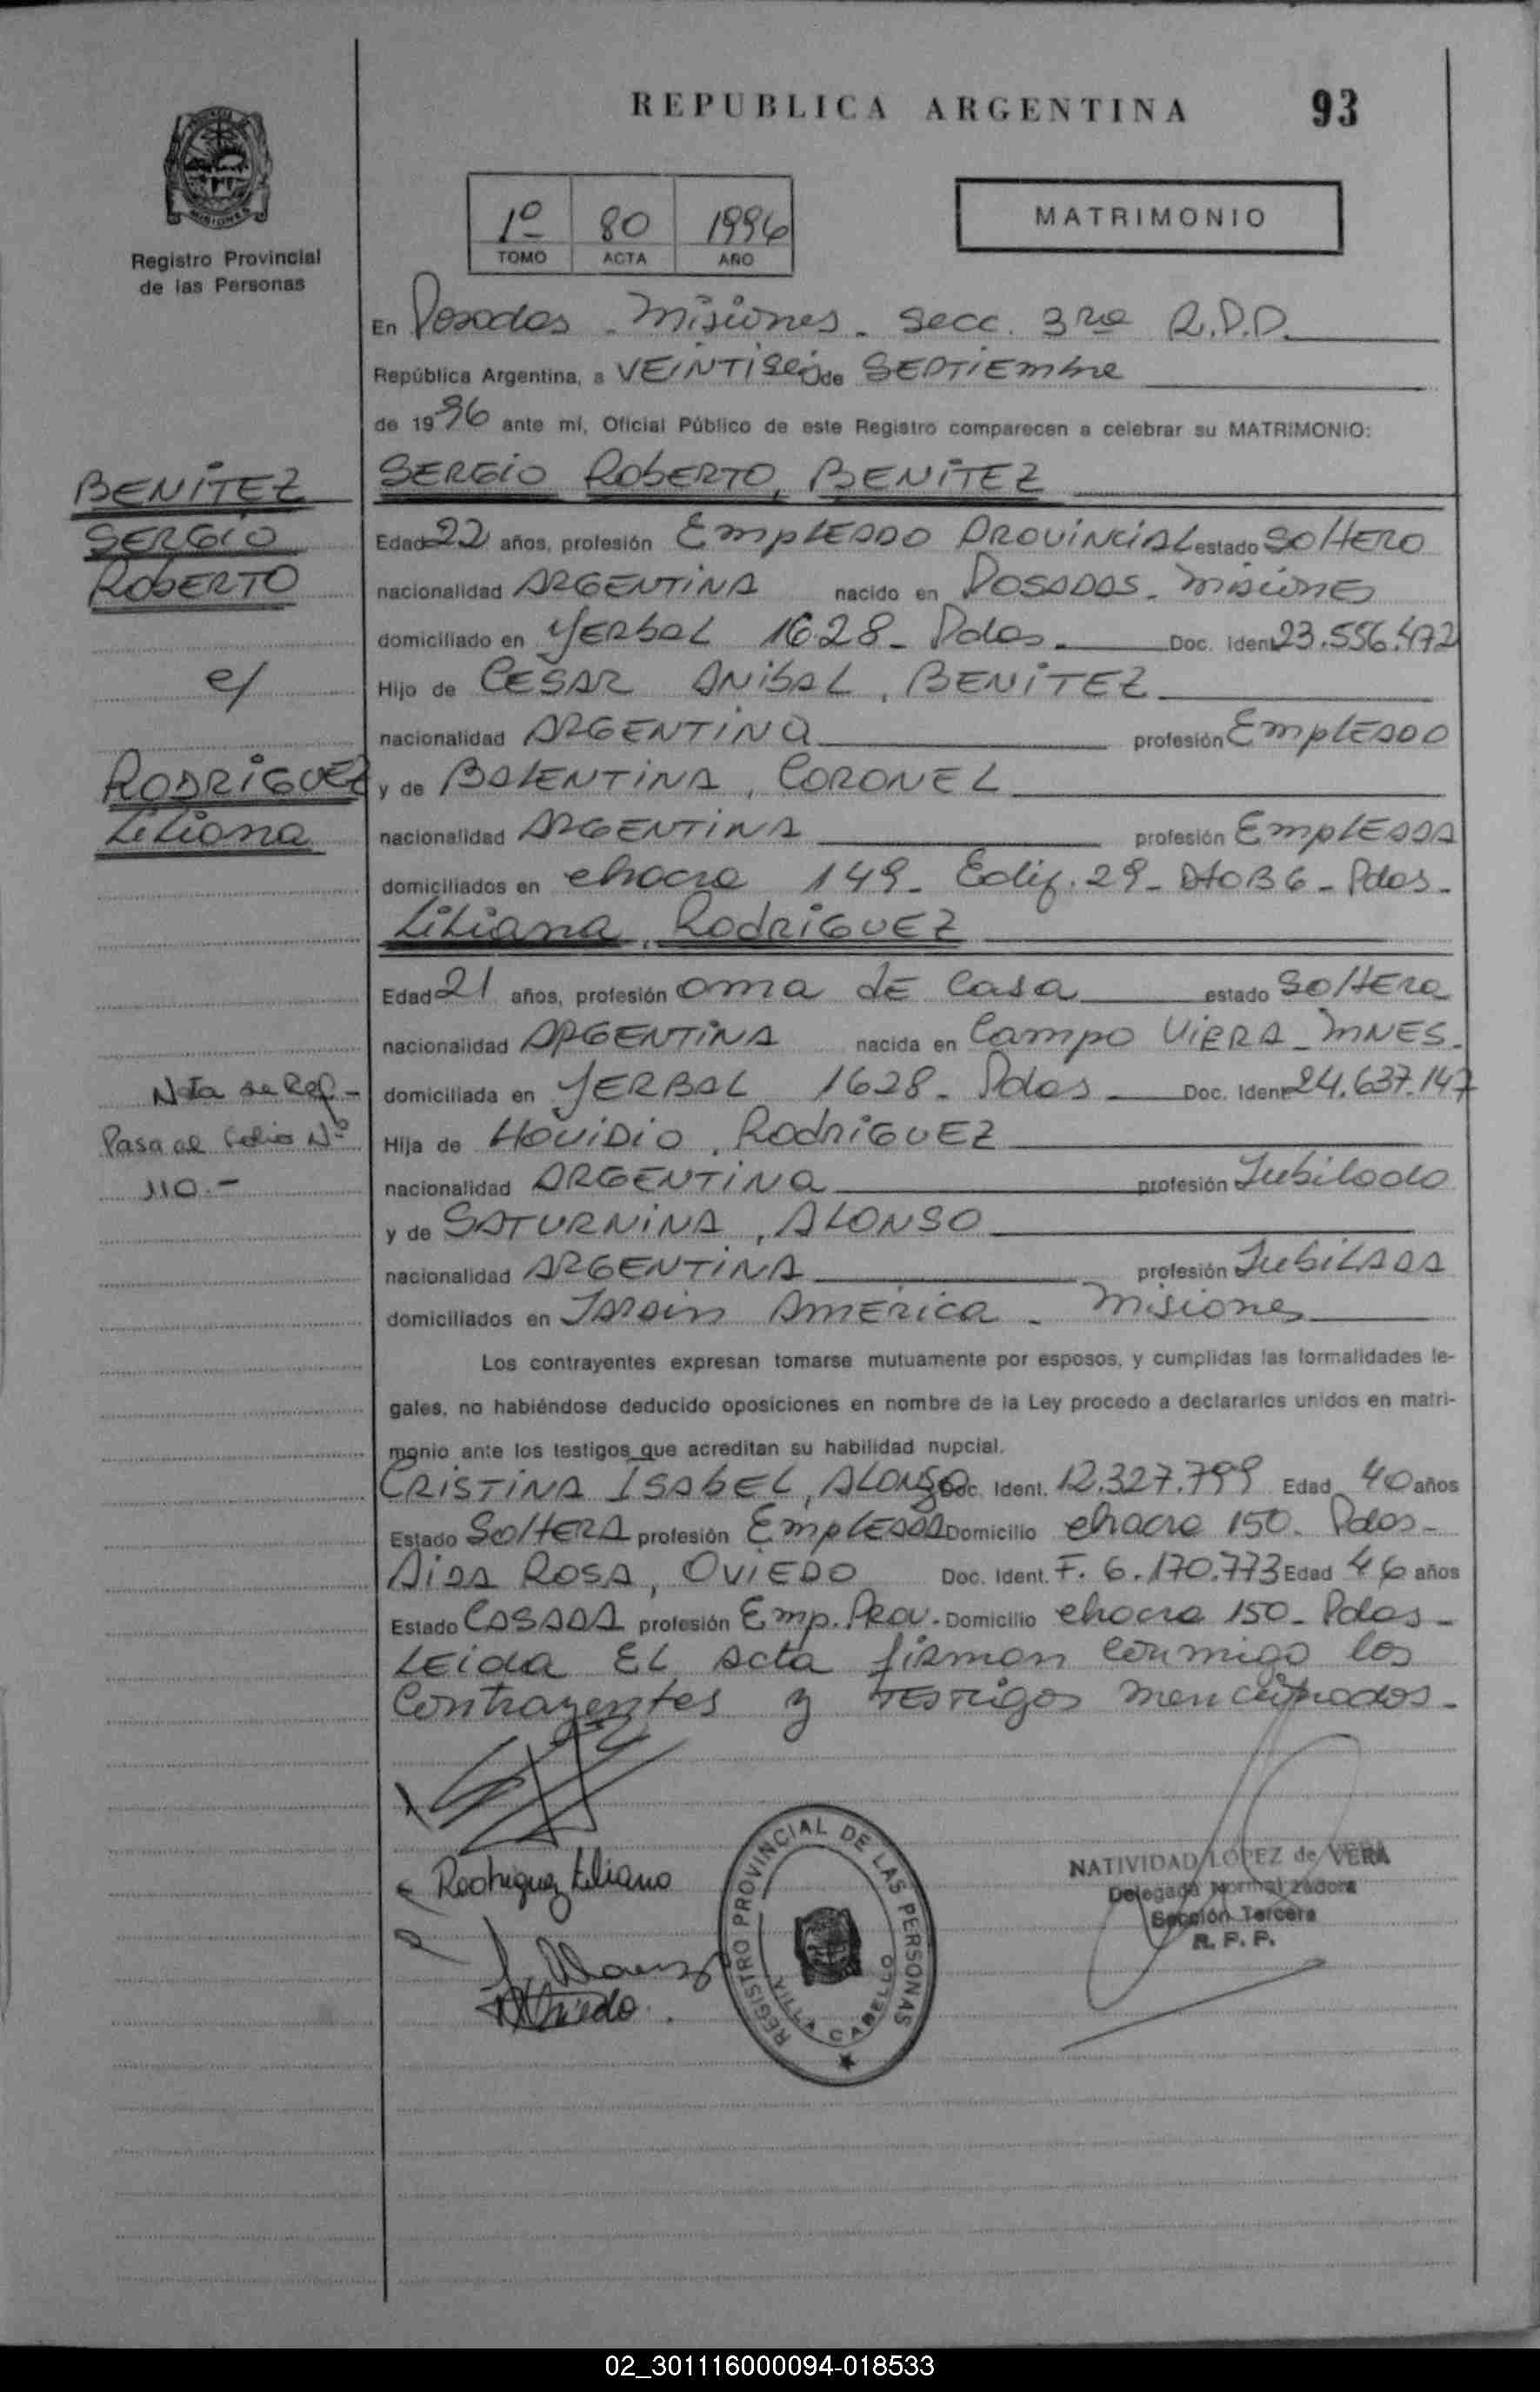 REPUBLICA ARGENTINA
93
MISIONES
Registro Provincial
de las Personas
1º 80 1996
TOMO ACTA AÑO
MATRIMONIO
En Posadas - Misiones - Secc. 3ra R.P.P.
República Argentina, a VEINTISeis de SEPTiEmbre
de 1996 ante mí, Oficial Público de este Registro comparecen a celebrar su MATRIMONIO:
BENITEZ
SERGIO
ROBERTO
c/
RODRIGUEZ
Liliana
SERGIO ROBERTO, BENITEZ
Edad 22 años, profesión EmpLEADO PROVINCIAL estado SOLtERO
nacionalidad ARGENTINA nacido en POSADAS - MISIONES
domiciliado en YERbAL 1628 - Pdas. Doc. Ident. 23.556.472
Hijo de CESAR ANIBAL, BENITEZ
nacionalidad ARGENTINA profesión EmpLEADO
y de BALENTINA, CORONEL
nacionalidad ARGENTINA profesión EmpLEADA
domiciliados en chacra 149 - Edif. 29 - Dto B6 - Pdas -
Liliana, RodRIGUEZ
Edad 21 años, profesión ama de Casa estado SOLtERa
nacionalidad ARGENTINA nacida en Campo VIERA - MNES.
domiciliada en YERBAL 1628 - Pdas Doc. Ident. 24.637.147
Hija de HOVIDIO, RodRIGUEZ
nacionalidad ARGENTINA profesión Jubilado
y de SATURNINA, ALONSO
nacionalidad ARGENTINA profesión JubiLADA
domiciliados en JARDIN AMERICA - Misiones
Nota de Ref. -
Pasa al folio Nº
110.-
Los contrayentes expresan tomarse mutuamente por esposos, y cumplidas las formalidades le-
gales, no habiéndose deducido oposiciones en nombre de la Ley procedo a declararlos unidos en matri-
monio ante los testigos que acreditan su habilidad nupcial.
CRISTINA ISAbEL, ALONSO Doc. Ident. 12.327.799 Edad 40 años
Estado SOLtERA profesión EmpLEADA Domicilio chacra 150 - Pdas -
AIDA ROSA, OVIEDO Doc. Ident. F. 6.170.773 Edad 46 años
Estado CASADA profesión Emp. Prov. Domicilio chacra 150 - Pdas -
LEida EL Acta firman conmigo los
Contrayentes y TESTigos mencionados -
Rodriguez Liliana
Oviedo
REGISTRO PROVINCIAL DE LAS PERSONAS
VILLA CABELLO
NATIVIDAD LOPEZ de VERA
Delegada Normalizadora
Sección Tercera
R. P. P.
02_301116000094-018533